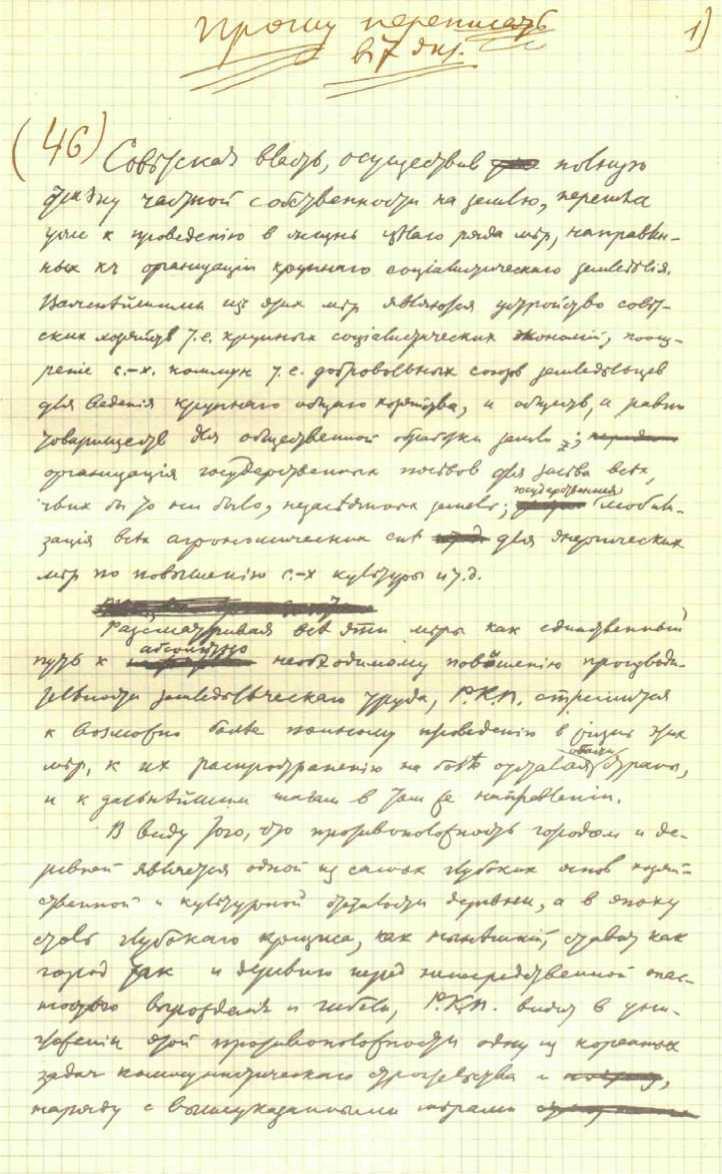 прошу переписать
в 7 экз.
1)
(46) Совѣтская власть, осуществив полную
отмену частной собственности на землю, перешла
уже к проведенію в жизнь цѣлаго ряда мѣр, направлен-
ных къ организаціи крупнаго соціалистическаго земледѣлія.
Важнѣйшими из этих мѣр являются устройство совѣт-
ских хозяйств т.е. крупных соціалистических экономій, поощ-
реніе с.-х. коммун т.е. добровольных союзов земледѣльцев
для веденія крупнаго общаго хозяйства, и обществ, а равно
товариществ для общественной обработки земли;
организація государственных посѣвов для засѣва всѣх,
чьих бы то ни было, незасѣянных земель; государственная мобили-
зація всѣх агрономических сил для энергических
мѣр по повышенію с.-х культуры и т.д.
Разсматривая всѣ эти мѣры как единственный
путь к абсолютно необходимому повышенію производи-
тельности земледѣльческаго труда, Р.К.П. стремится
к возможно болѣе полному проведенію в жизнь этих
мѣр, к их распространенію на болѣе отсталыя области страны,
и к дальнѣйшим шагам в том же направленіи.
В виду того, что противоположность городом и де-
ревней является одной из самых глубоких основ хозяй-
ственной и культурной отсталости деревни, а в эпоху
столь глубокаго кризиса, как нынѣшній, ставит как
город так и деревню перед непосредственной опас-
ностью вырожденія и гибели, Р.К.П. видит в уни-
чтоженіи этой противоположности одну из коренных
задач коммунистическаго строительства и
наряду с вышеуказанными мѣрами